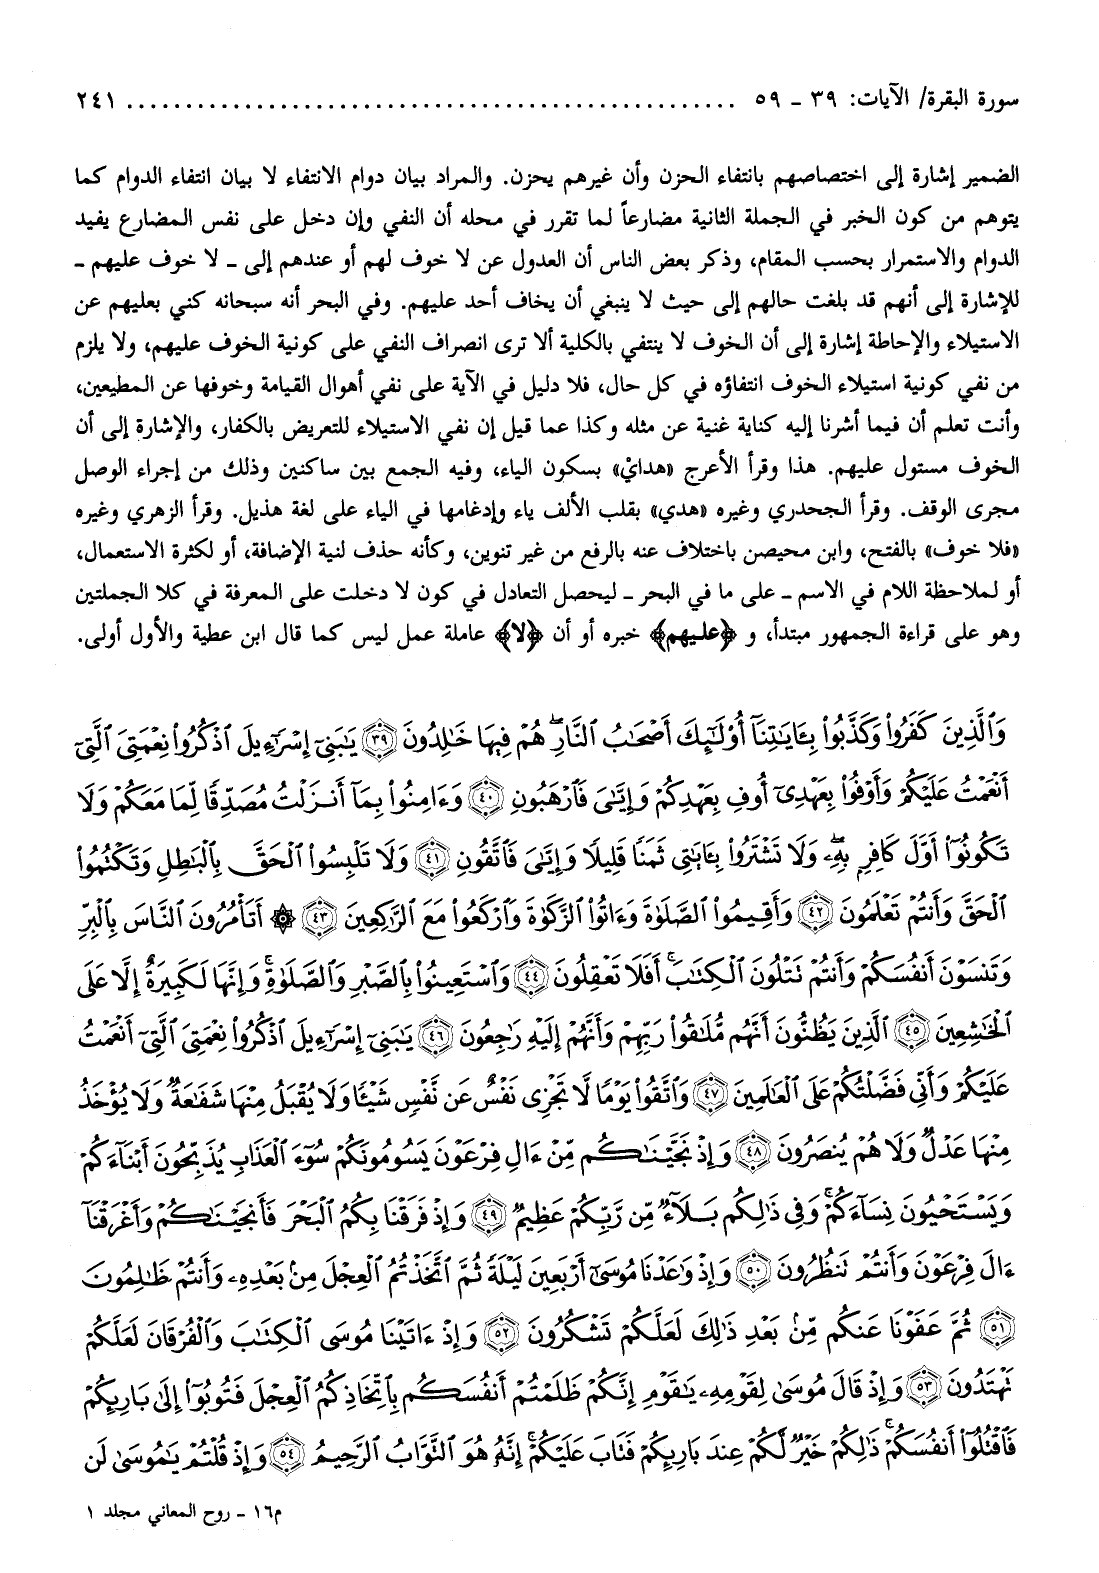 سورة البقرة/ الآيات: ٣٩ - ٥٩ ........................................................ ٢٤١
الضمير إشارة إلى اختصاصهم بانتفاء الحزن وأن غيرهم يحزن. والمراد بيان دوام الانتفاء لا بيان انتفاء الدوام كما
يتوهم من كون الخبر في الجملة الثانية مضارعاً لما تقرر في محله أن النفي وإن دخل على نفس المضارع يفيد
الدوام والاستمرار بحسب المقام، وذكر بعض الناس أن العدول عن لا خوف لهم أو عندهم إلى - لا خوف عليهم -
للإشارة إلى أنهم قد بلغت حالهم إلى حيث لا ينبغي أن يخاف أحد عليهم. وفي البحر أنه سبحانه كني بعليهم عن
الاستيلاء والإحاطة إشارة إلى أن الخوف لا ينتفي بالكلية ألا ترى انصراف النفي على كونية الخوف عليهم، ولا يلزم
من نفي كونية استيلاء الخوف انتفاؤه في كل حال، فلا دليل في الآية على نفي أهوال القيامة وخوفها عن المطيعين،
وأنت تعلم أن فيما أشرنا إليه كناية غنية عن مثله وكذا عما قيل إن نفي الاستيلاء للتعريض بالكفار، والإشارة إلى أن
الخوف مستول عليهم. هذا وقرأ الأعرج «هدايْ» بسكون الياء، وفيه الجمع بين ساكنين وذلك من إجراء الوصل
مجرى الوقف. وقرأ الجحدري وغيره «هدي» بقلب الألف ياء وإدغامها في الياء على لغة هذيل. وقرأ الزهري وغيره
«فلا خوف» بالفتح، وابن محيصن باختلاف عنه بالرفع من غير تنوين، وكأنه حذف لنية الإضافة، أو لكثرة الاستعمال،
أو لملاحظة اللام في الاسم - على ما في البحر - ليحصل التعادل في كون لا دخلت على المعرفة في كلا الجملتين
وهو على قراءة الجمهور مبتدأ، و ﴿عليهم﴾ خبره أو أن ﴿لا﴾ عاملة عمل ليس كما قال ابن عطية والأول أولى.
وَٱلَّذِينَ كَفَرُوا۟ وَكَذَّبُوا۟ بِـَٔايَـٰتِنَآ أُو۟لَـٰٓئِكَ أَصْحَـٰبُ ٱلنَّارِ ۖ هُمْ فِيهَا خَـٰلِدُونَ ٣٩ يَـٰبَنِىٓ إِسْرَٰٓءِيلَ ٱذْكُرُوا۟ نِعْمَتِىَ ٱلَّتِىٓ
أَنْعَمْتُ عَلَيْكُمْ وَأَوْفُوا۟ بِعَهْدِىٓ أُوفِ بِعَهْدِكُمْ وَإِيَّـٰىَ فَٱرْهَبُونِ ٤٠ وَءَامِنُوا۟ بِمَآ أَنزَلْتُ مُصَدِّقًا لِّمَا مَعَكُمْ وَلَا
تَكُونُوٓا۟ أَوَّلَ كَافِرٍۭ بِهِۦ ۖ وَلَا تَشْتَرُوا۟ بِـَٔايَـٰتِى ثَمَنًا قَلِيلًا وَإِيَّـٰىَ فَٱتَّقُونِ ٤١ وَلَا تَلْبِسُوا۟ ٱلْحَقَّ بِٱلْبَـٰطِلِ وَتَكْتُمُوا۟
ٱلْحَقَّ وَأَنتُمْ تَعْلَمُونَ ٤٢ وَأَقِيمُوا۟ ٱلصَّلَوٰةَ وَءَاتُوا۟ ٱلزَّكَوٰةَ وَٱرْكَعُوا۟ مَعَ ٱلرَّٰكِعِينَ ٤٣ ۞ أَتَأْمُرُونَ ٱلنَّاسَ بِٱلْبِرِّ
وَتَنسَوْنَ أَنفُسَكُمْ وَأَنتُمْ تَتْلُونَ ٱلْكِتَـٰبَ ۚ أَفَلَا تَعْقِلُونَ ٤٤ وَٱسْتَعِينُوا۟ بِٱلصَّبْرِ وَٱلصَّلَوٰةِ ۚ وَإِنَّهَا لَكَبِيرَةٌ إِلَّا عَلَى
ٱلْخَـٰشِعِينَ ٤٥ ٱلَّذِينَ يَظُنُّونَ أَنَّهُم مُّلَـٰقُوا۟ رَبِّهِمْ وَأَنَّهُمْ إِلَيْهِ رَٰجِعُونَ ٤٦ يَـٰبَنِىٓ إِسْرَٰٓءِيلَ ٱذْكُرُوا۟ نِعْمَتِىَ ٱلَّتِىٓ أَنْعَمْتُ
عَلَيْكُمْ وَأَنِّى فَضَّلْتُكُمْ عَلَى ٱلْعَـٰلَمِينَ ٤٧ وَٱتَّقُوا۟ يَوْمًا لَّا تَجْزِى نَفْسٌ عَن نَّفْسٍ شَيْـًٔا وَلَا يُقْبَلُ مِنْهَا شَفَـٰعَةٌ وَلَا يُؤْخَذُ
مِنْهَا عَدْلٌ وَلَا هُمْ يُنصَرُونَ ٤٨ وَإِذْ نَجَّيْنَـٰكُم مِّنْ ءَالِ فِرْعَوْنَ يَسُومُونَكُمْ سُوٓءَ ٱلْعَذَابِ يُذَبِّحُونَ أَبْنَآءَكُمْ
وَيَسْتَحْيُونَ نِسَآءَكُمْ ۚ وَفِى ذَٰلِكُم بَلَآءٌ مِّن رَّبِّكُمْ عَظِيمٌ ٤٩ وَإِذْ فَرَقْنَا بِكُمُ ٱلْبَحْرَ فَأَنجَيْنَـٰكُمْ وَأَغْرَقْنَآ
ءَالَ فِرْعَوْنَ وَأَنتُمْ تَنظُرُونَ ٥٠ وَإِذْ وَٰعَدْنَا مُوسَىٰٓ أَرْبَعِينَ لَيْلَةً ثُمَّ ٱتَّخَذْتُمُ ٱلْعِجْلَ مِنۢ بَعْدِهِۦ وَأَنتُمْ ظَـٰلِمُونَ
٥١ ثُمَّ عَفَوْنَا عَنكُم مِّنۢ بَعْدِ ذَٰلِكَ لَعَلَّكُمْ تَشْكُرُونَ ٥٢ وَإِذْ ءَاتَيْنَا مُوسَى ٱلْكِتَـٰبَ وَٱلْفُرْقَانَ لَعَلَّكُمْ
تَهْتَدُونَ ٥٣ وَإِذْ قَالَ مُوسَىٰ لِقَوْمِهِۦ يَـٰقَوْمِ إِنَّكُمْ ظَلَمْتُمْ أَنفُسَكُم بِٱتِّخَاذِكُمُ ٱلْعِجْلَ فَتُوبُوٓا۟ إِلَىٰ بَارِئِكُمْ
فَٱقْتُلُوٓا۟ أَنفُسَكُمْ ذَٰلِكُمْ خَيْرٌ لَّكُمْ عِندَ بَارِئِكُمْ فَتَابَ عَلَيْكُمْ ۚ إِنَّهُۥ هُوَ ٱلتَّوَّابُ ٱلرَّحِيمُ ٥٤ وَإِذْ قُلْتُمْ يَـٰمُوسَىٰ لَن
م١٦ - روح المعاني مجلد ١